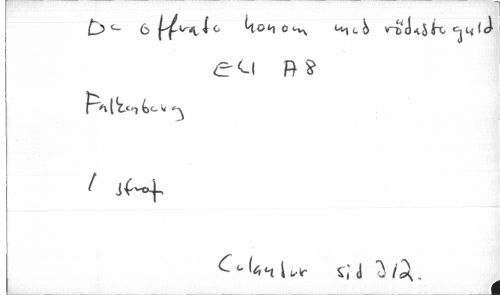 De offrade honom med rödaste guld
EU A8
Falkenberg
1 strof
Celander sid 312.